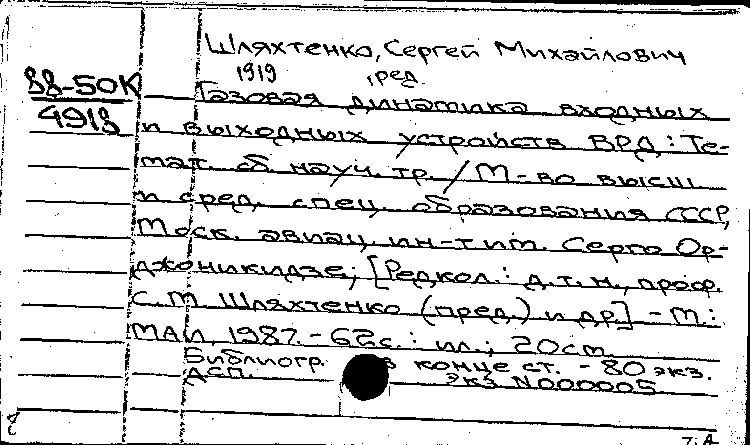 Шляхтенко, Сергей Михайлович
1919 , ред.
88-50К
4918
Газовая динамика входных
и выходных устройств ВРД : Те-
мат. сб. науч. тр. / М-во высш.
и сред. спец. образования СССР,
Моск. авиац. ин-т им. Серго Ор-
джоникидзе; [Редкол.: д.т.н., проф.
С.М. Шляхтенко (пред.) и др.] - М.:
МАИ, 1987. - 62с. : ил.; 20см.
Библиогр. в конце ст. - 80 экз.
ДСП. экз. N000005